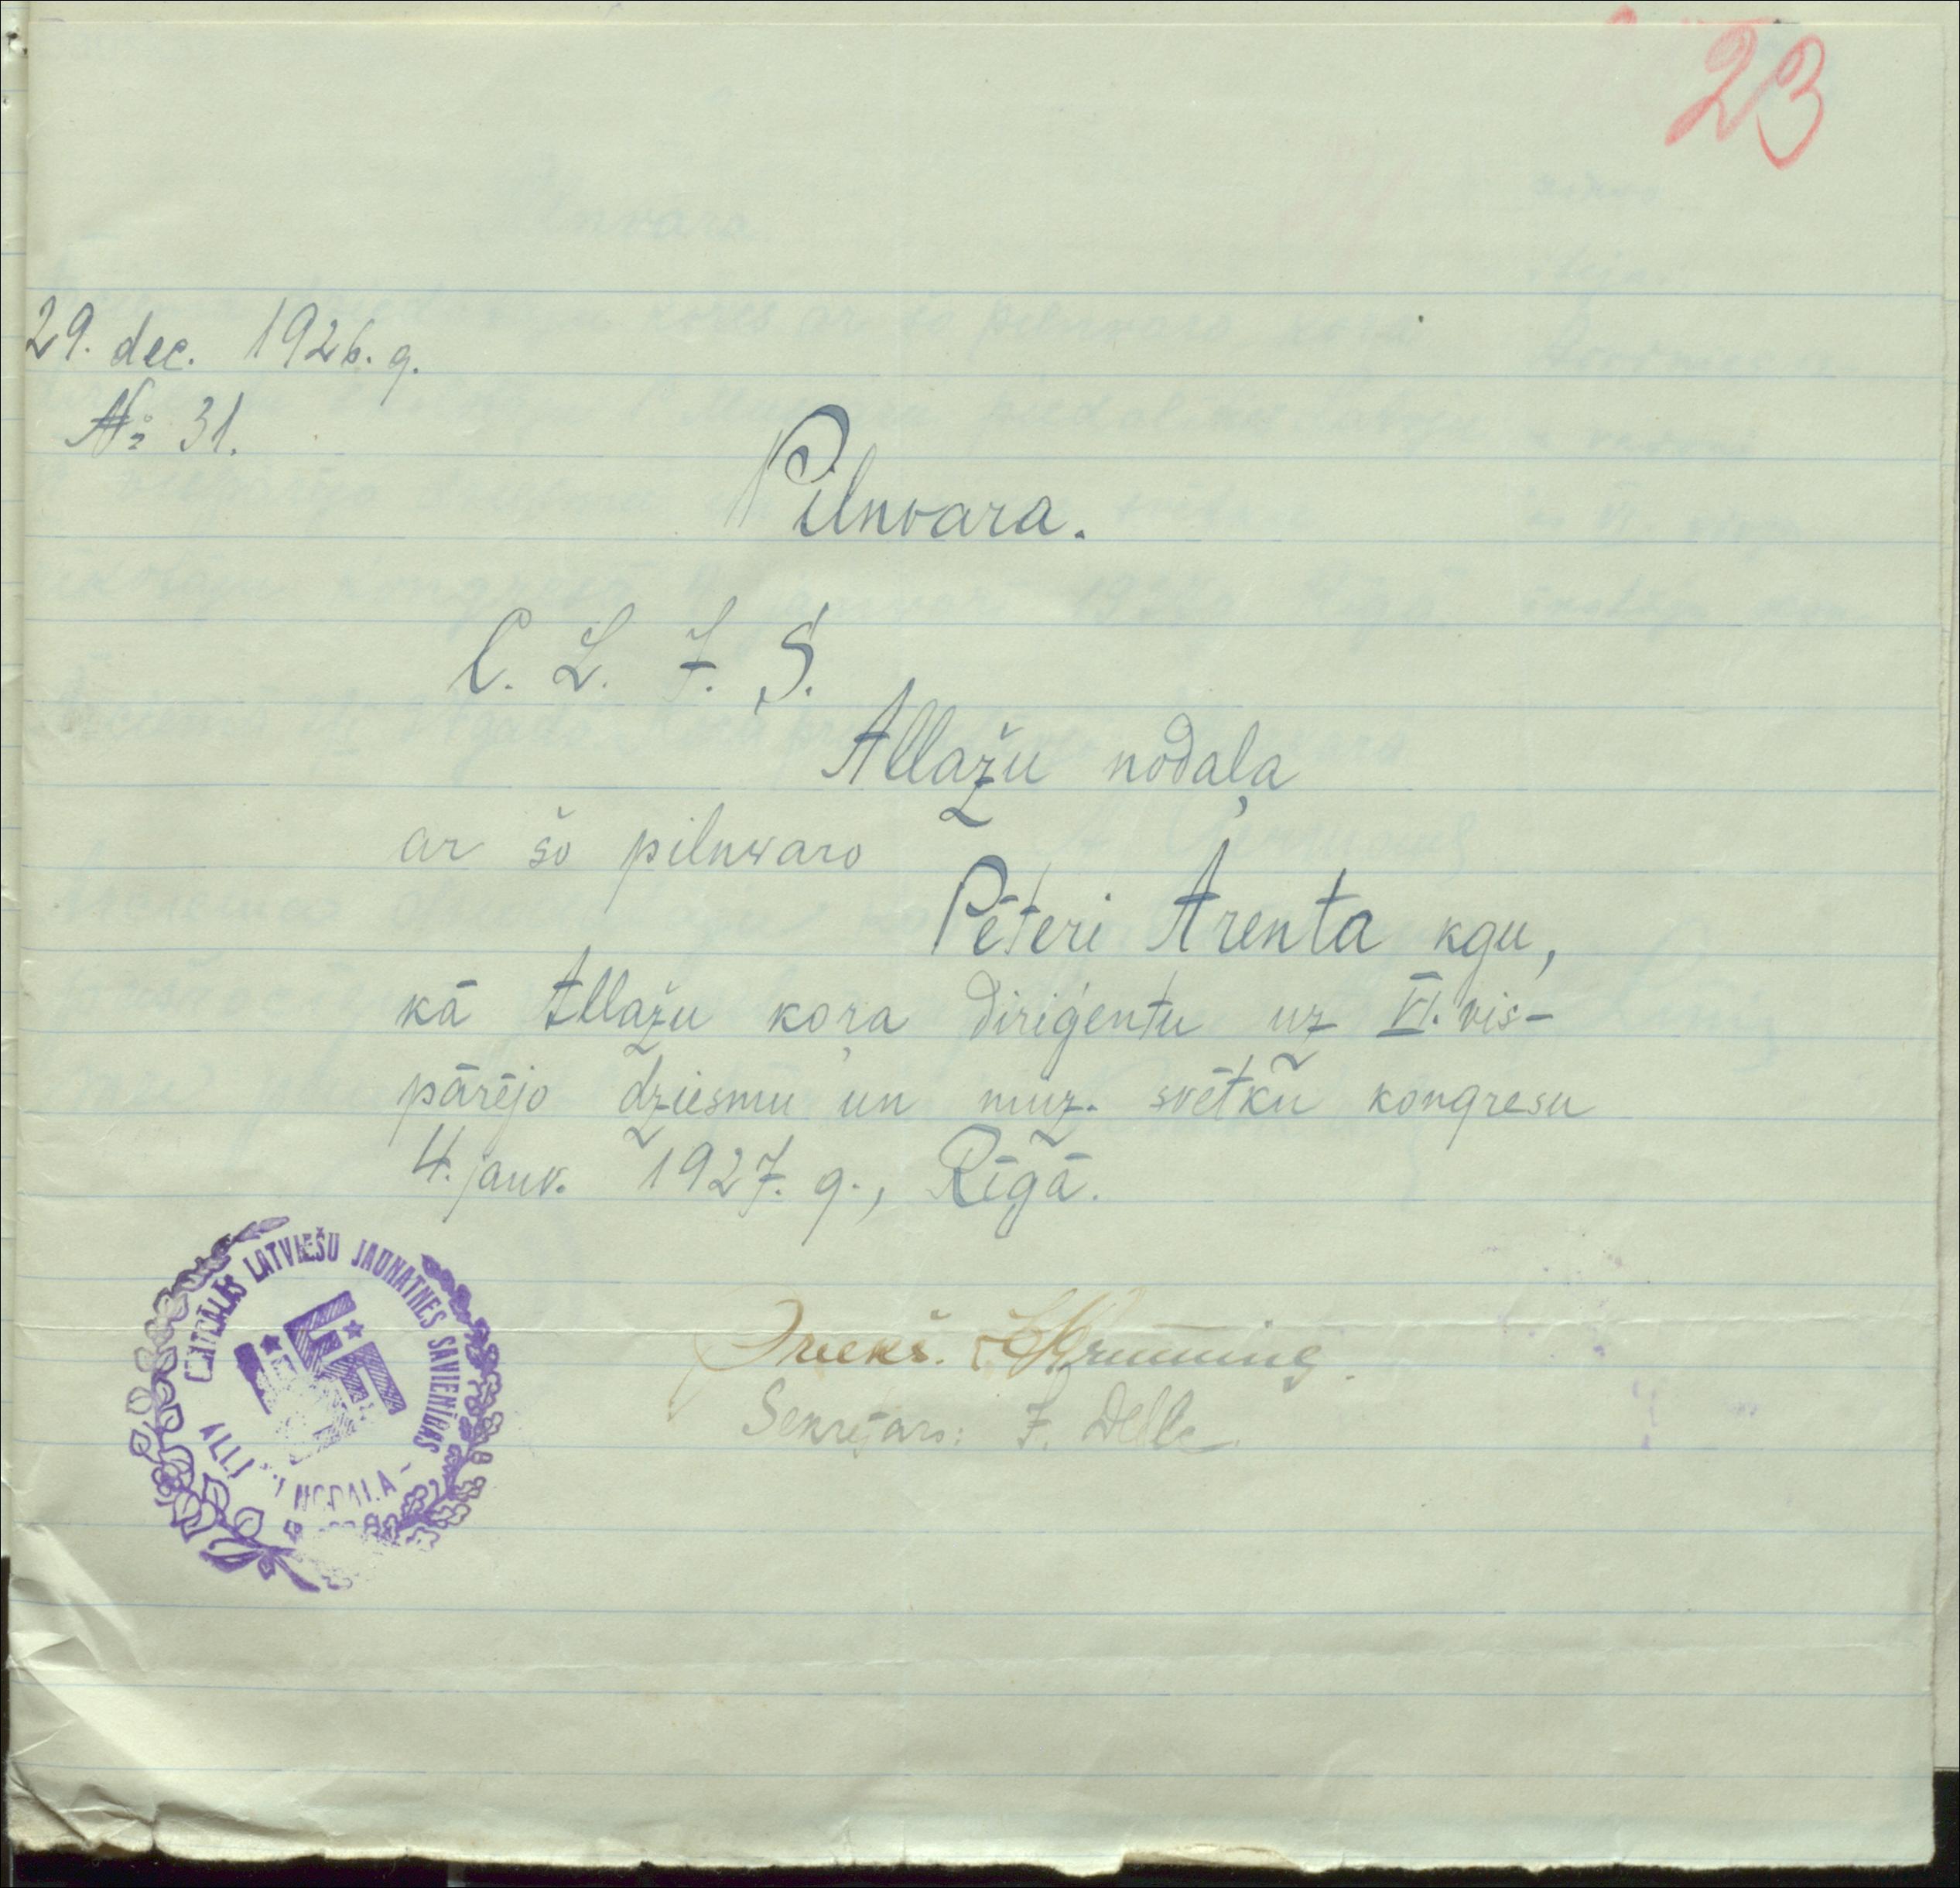 23
29. dec. 1926. g.
№ 31.
Pilnvara.
C. L. J. S.
Allažu nodaļa
ar šo pilnvaro
Pēteri Arenta kgu,
kā Allažu koŗa diriģentu uz VI. vis-
pārējo dziesmu un muz. svētku kongresu
4. janv. 1927. g., Rīgā.
CENTRĀLĀS LATVIEŠU JAUNATNES SAVIENĪBAS
NODAĻA
Priekš.
Sekretars: J. Delle